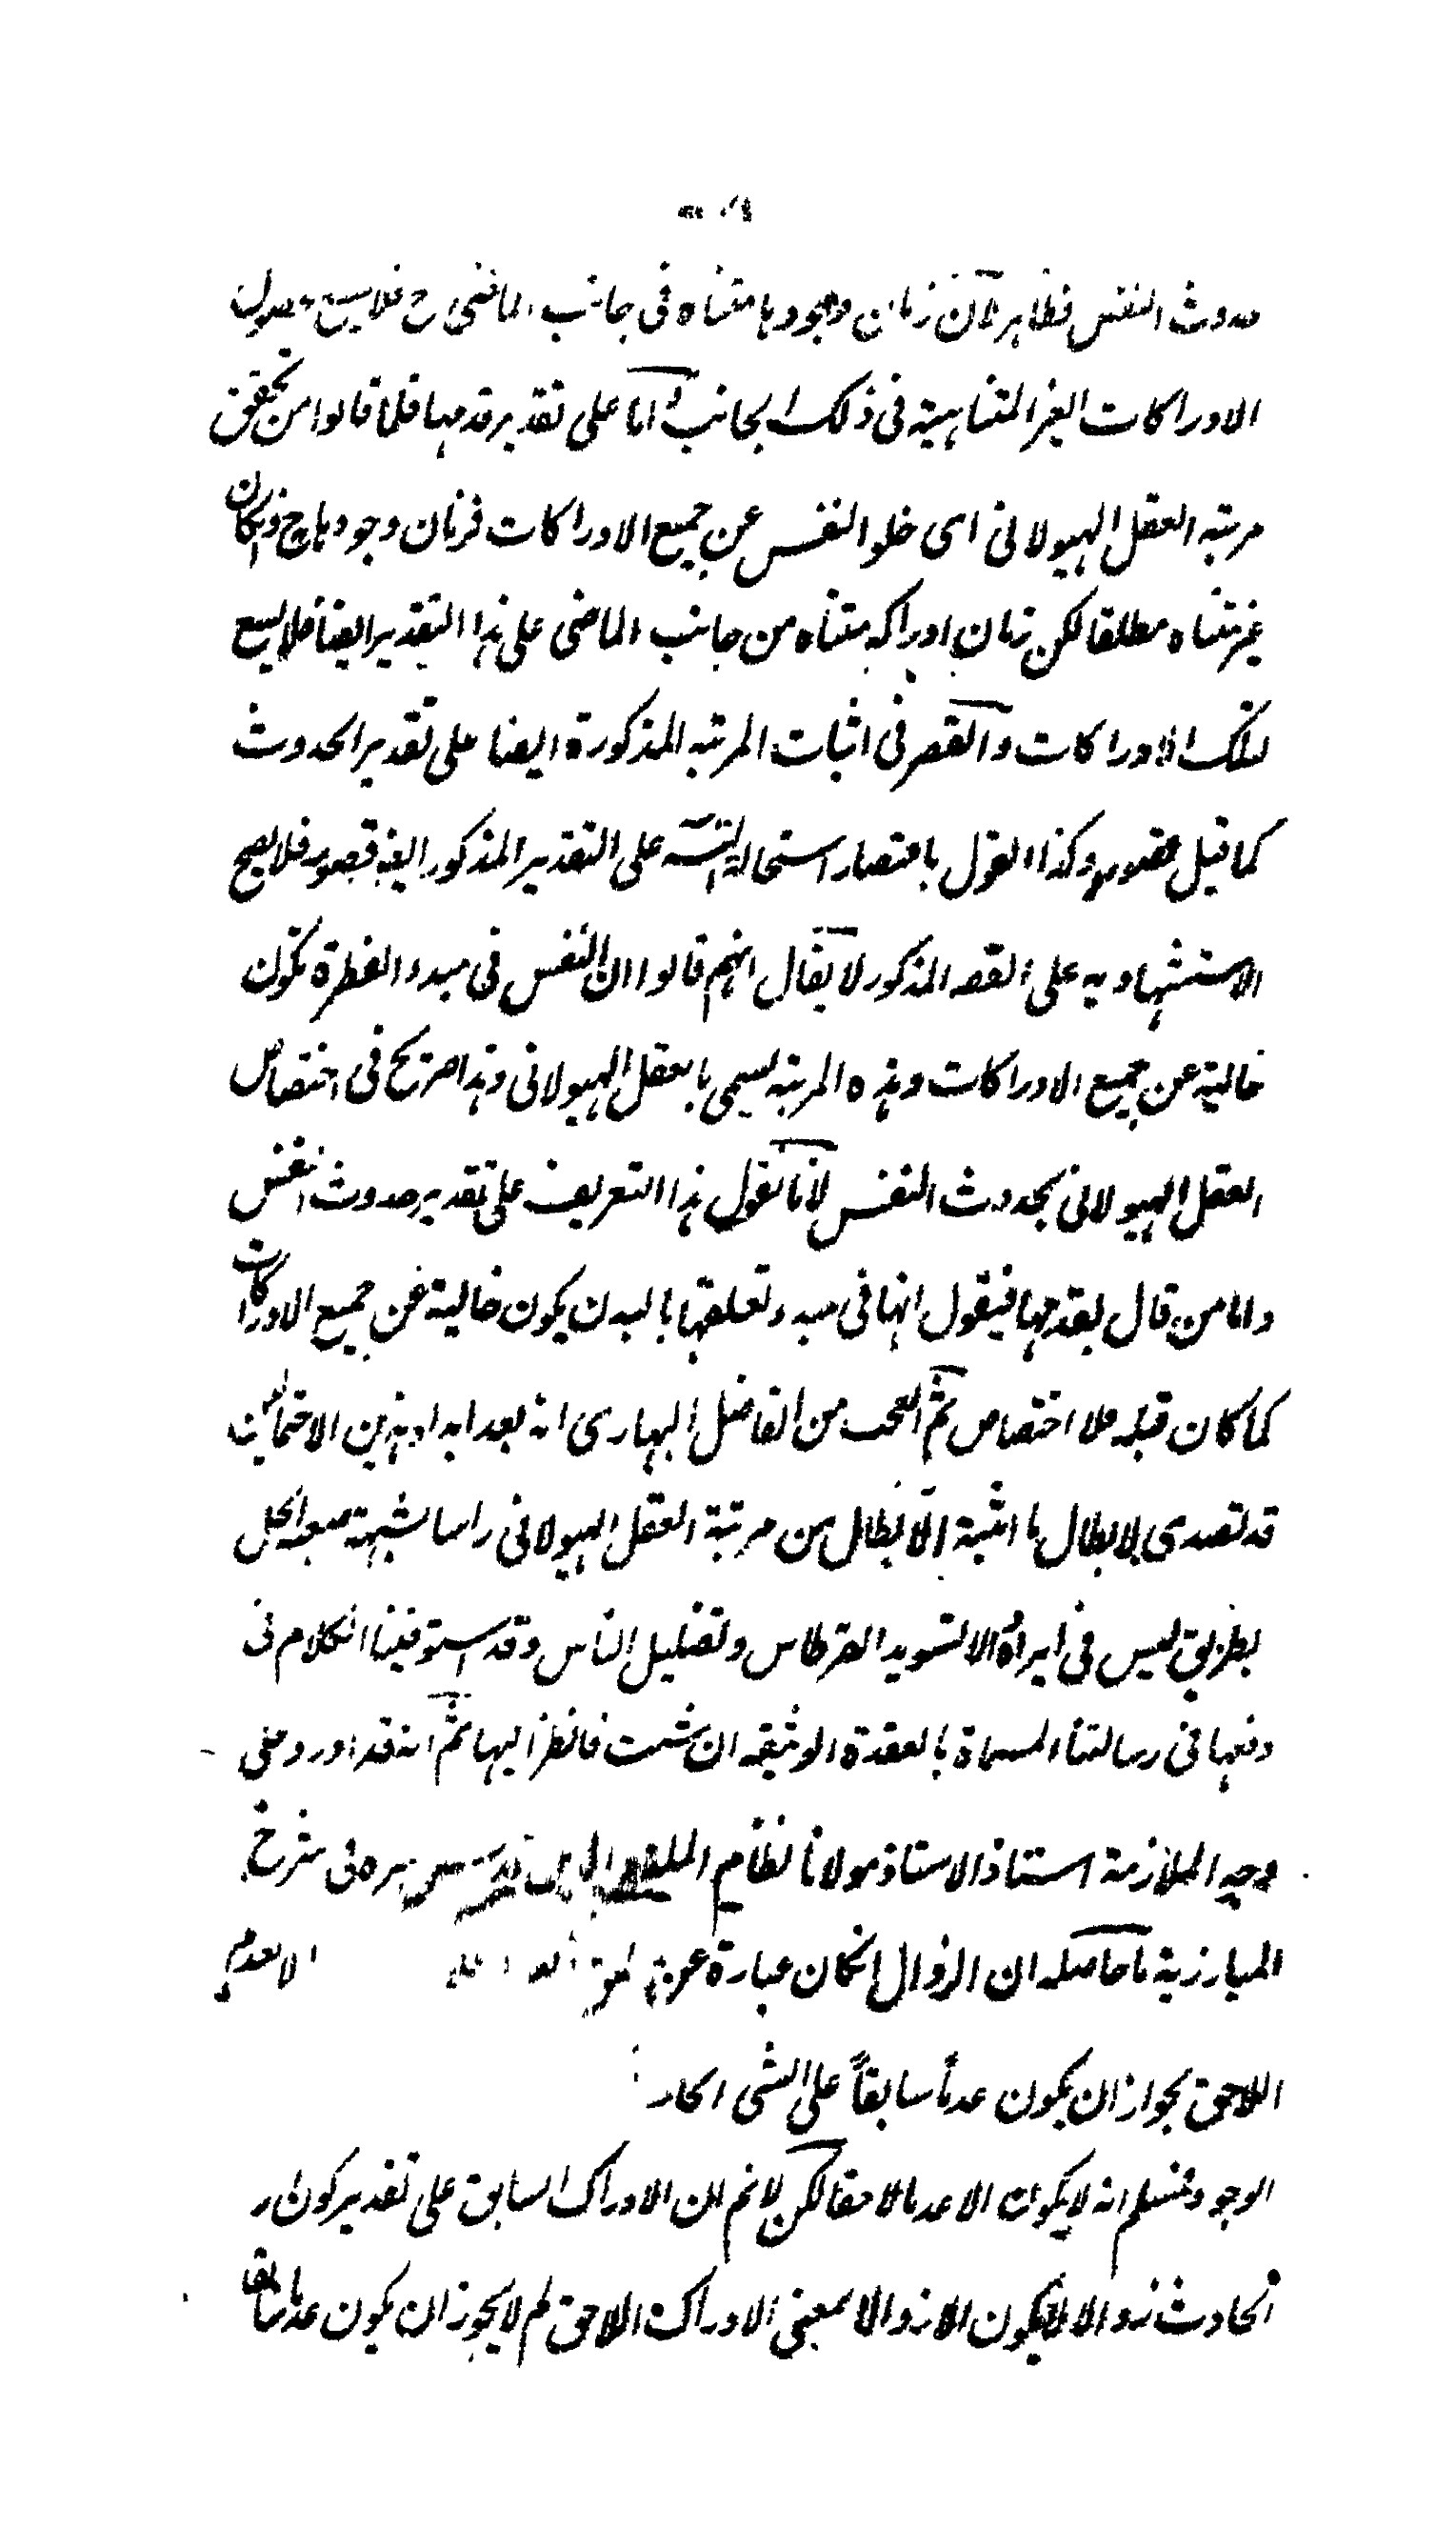 حدوث النفس فظاهر لان زمان وجودها متناه فى جانب الماضى ح فلا يسع حصول
الادراكات الغير المتناهية فى ذلك الجانب واما على تقدير قدمها فلما قالوا من تحقق
مرتبه العقل الهيولانى اى خلو النفس عن جميع الادراكات فزمان وجودها ح وانكان
غير متناه مطلقا لكن زمان ادراكه متناه من جانب الماضى على هذا التقدير ايضا فلا يسع
لتلك الادراكات والقصر فى اثبات المرتبه المذكورة ايضا على تقدير الحدوث
كما قيل قصور وكذا القول باختصار استحالة التس على التقدير المذكور ايضا قصور فلا يصح
الاستشهاد به على القصر المذكور لا يقال انهم قالوا ان النفس فى مبدء الفطرة تكون
خالية عن جميع الادراكات وهذه المرتبه يسمى بالعقل الهيولانى وهذا صريح فى اختصاص
العقل الهيولانى بحدوث النفس لانا نقول هذا التعريف على تقدير حدوث النفس
واما من قال بقدمها فيقول انها فى مبدء تعلقها بالبدن يكون خالية عن جميع الادراكات
كما كان قبله فلا اختصاص ثم العجب من الفاضل البهارى انه بعد ابداء هذين الاحتمالين
قد تصدى لابطال ما اثبته الابطال من مرتبة العقل الهيولانى راسا بشبهة صعبه الحل
بطريق ليس فى ايراده الا تسويد القرطاس وتضليل الناس وقد استوفينا الكلام فى
دفعها فى رسالتنا المسماة بالعقدة الوثيقه ان شئت فانظر اليها ثم انه قد اورد على
وجه الملازمة استاذ الاستاذ مولانا نظام الملة والدين قدس سره فى شرح
المبارزية ما حاصله ان الزوال انكان عبارة عن العدم
اللاحق بجواز ان يكون عدماً سابقاً على الشى
الوجود فنسلم انه لا يكون الا عدما لاحقا لكن لا نم ان الادراك السابق على تقدير كون
الحادث زوالا لا يكون الا زوالا بمعنى الادراك اللاحق لم لا يجوز ان يكون عدما سابقا